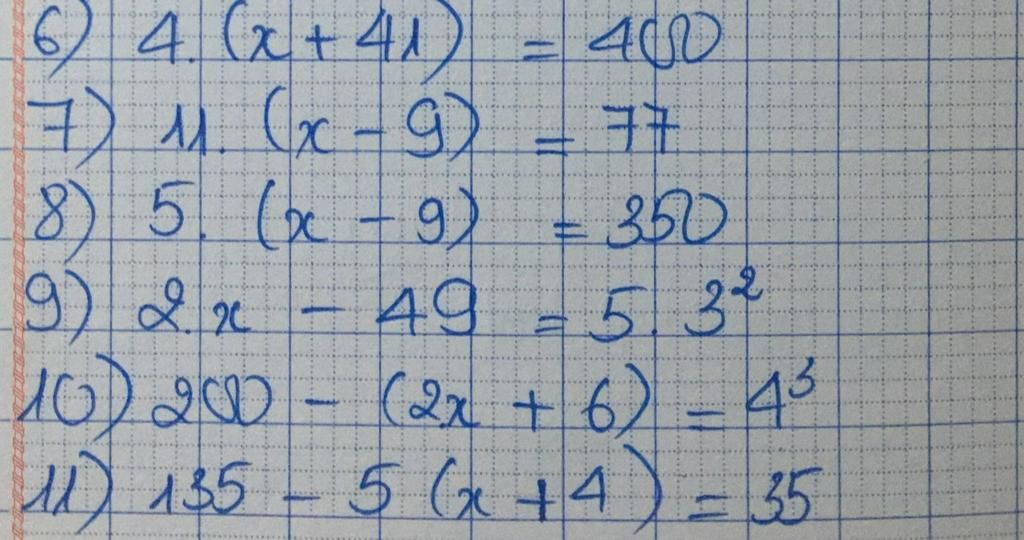 6) 4. (x + 41) = 400
7) 11. (x - 9) = 77
8) 5. (x - 9) = 350
9) 2.x - 49 = 5. 3²
10) 200 - (2x + 6) = 4³
11) 135 - 5 (x + 4) = 35